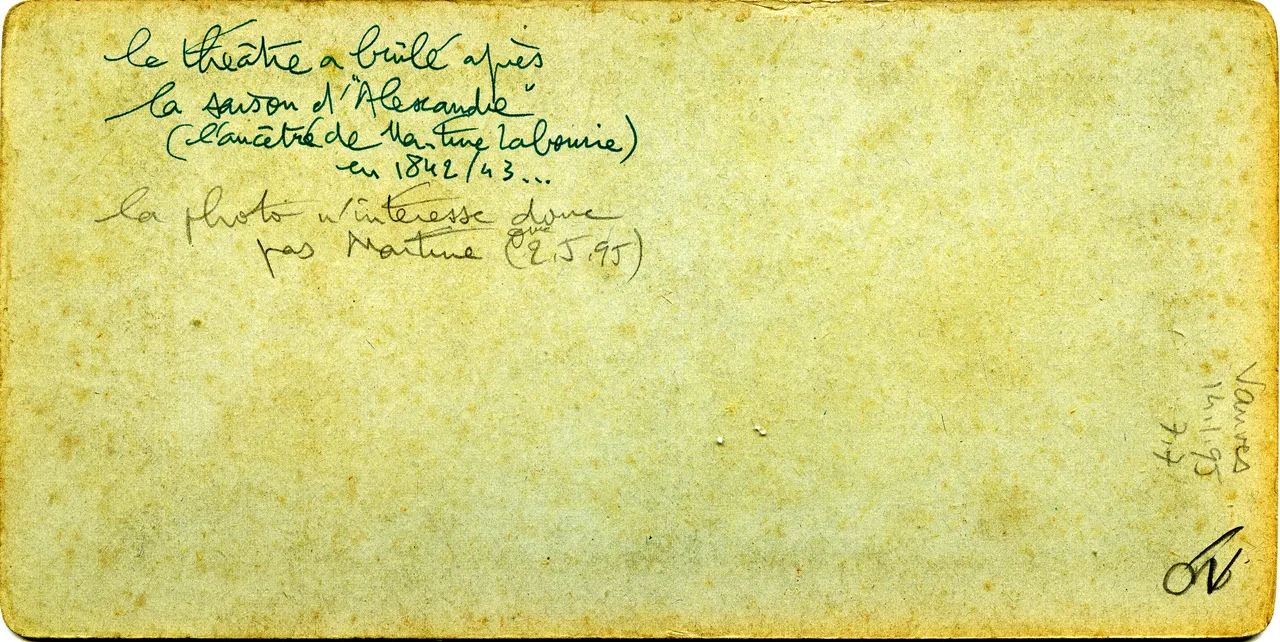 le théâtre a brûlé après
la saison d'"Alexandre"
(l'ancêtre de Martine Labourie)
en 1842/43...
la photo n'intéresse donc
pas Martine (2.5.95)
Vanves
14.1.95